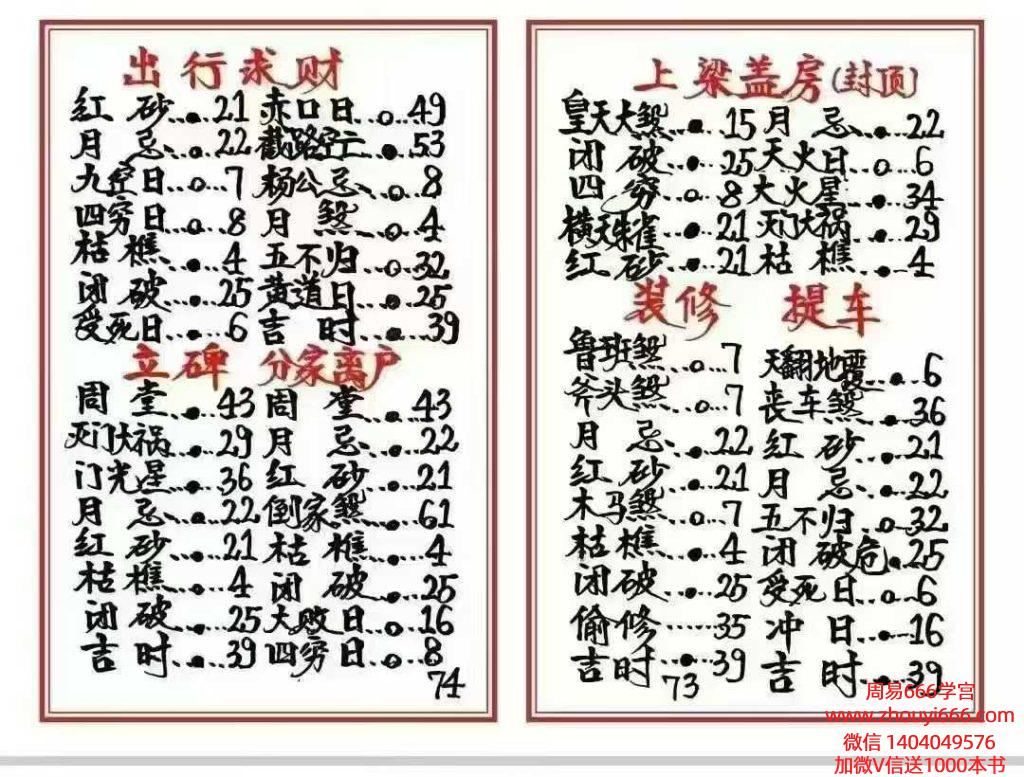 出行求财
红砂...●...21 赤口日..○...49
月忌...●...22 截路空亡..●...53
九空日...○...7 杨公忌...○...8
四穷日...○...8 月煞...○...4
枯樵...●...4 五不归...○...32
闭破...●...25 黄道日...●...25
受死日...●...6 吉时...●...39
立碑 分家离户
周堂...●...43 周堂...●...43
灭门大祸...●...29 月忌...●...22
门光星...●...36 红砂...●...21
月忌...●...22 倒家煞...●...61
红砂...●...21 枯樵...●...4
枯樵...●...4 闭破...●...25
闭破...●...25 大败日...○...16
吉时...●...39 四穷日...○...8
74
上梁盖房(封顶)
皇天大煞...●...15 月忌...●...22
闭破...●...25 天火日...○...6
四穷...○...8 大火星...●...34
横天朱雀...●...21 灭门大祸...●...29
红砂...●...21 枯樵...●...4
装修 提车
鲁班煞...○...7 天翻地覆...●...6
斧头煞...○...7 丧车煞...●...36
月忌...●...22 红砂...●...21
红砂...●...21 月忌...●...22
木马煞...○...7 五不归...○...32
枯樵...●...4 闭破危.●.25
闭破...●...25 受死日...○...6
偷修......35 冲日...●...16
吉时...●...39 吉时...●...39
73
周易666学宫
www.zhouyi666.com
微信 1404049576
加微V信送1000本书